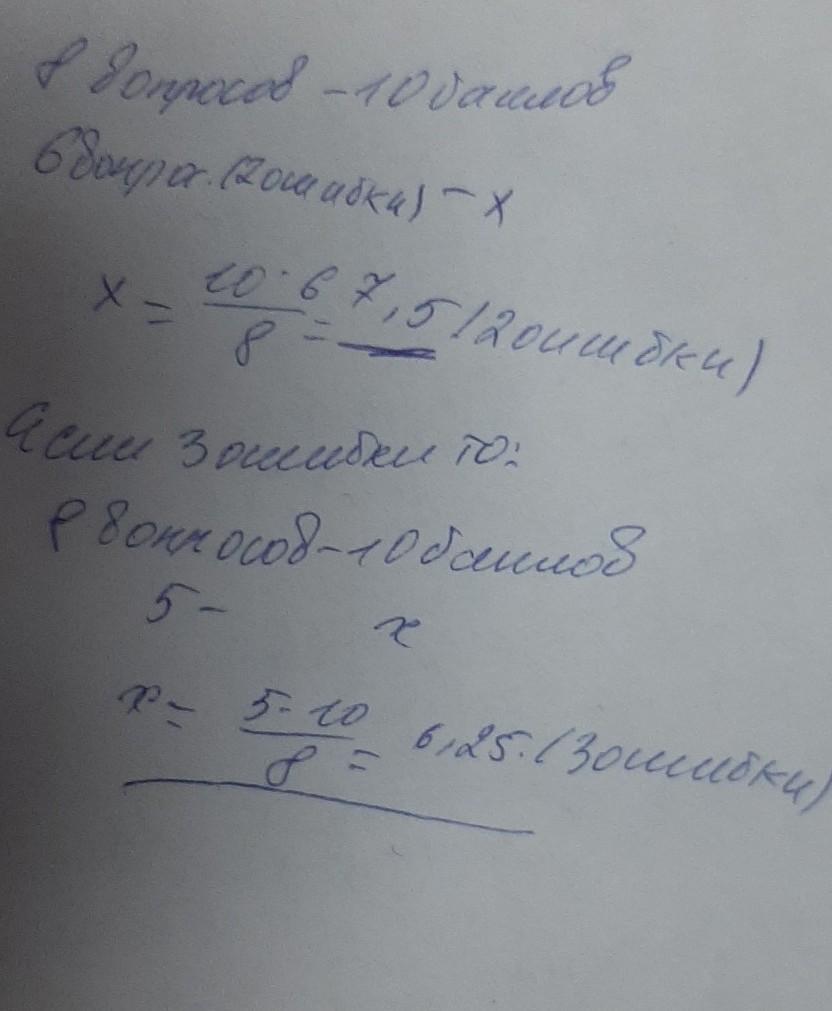 8 вопросов - 10 баллов
6 вопрос. (2 ошибки) - x
x = 10·6/8 = 7,5 (2 ошибки)
Если 3 ошибки то:
8 вопросов - 10 баллов
5 - x
x = 5·10/8 = 6,25. (3 ошибки)